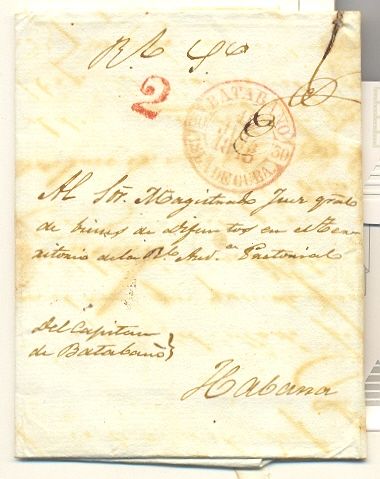 Rl. Sº.
2
BATABANO
ISLA DE CUBA
Al Sor. Magistrado Juez gral
de vienes de difuntos en el
ritorio de la Rl. Aud. Pretorial
Del Capitan
de Batabanó
Habana